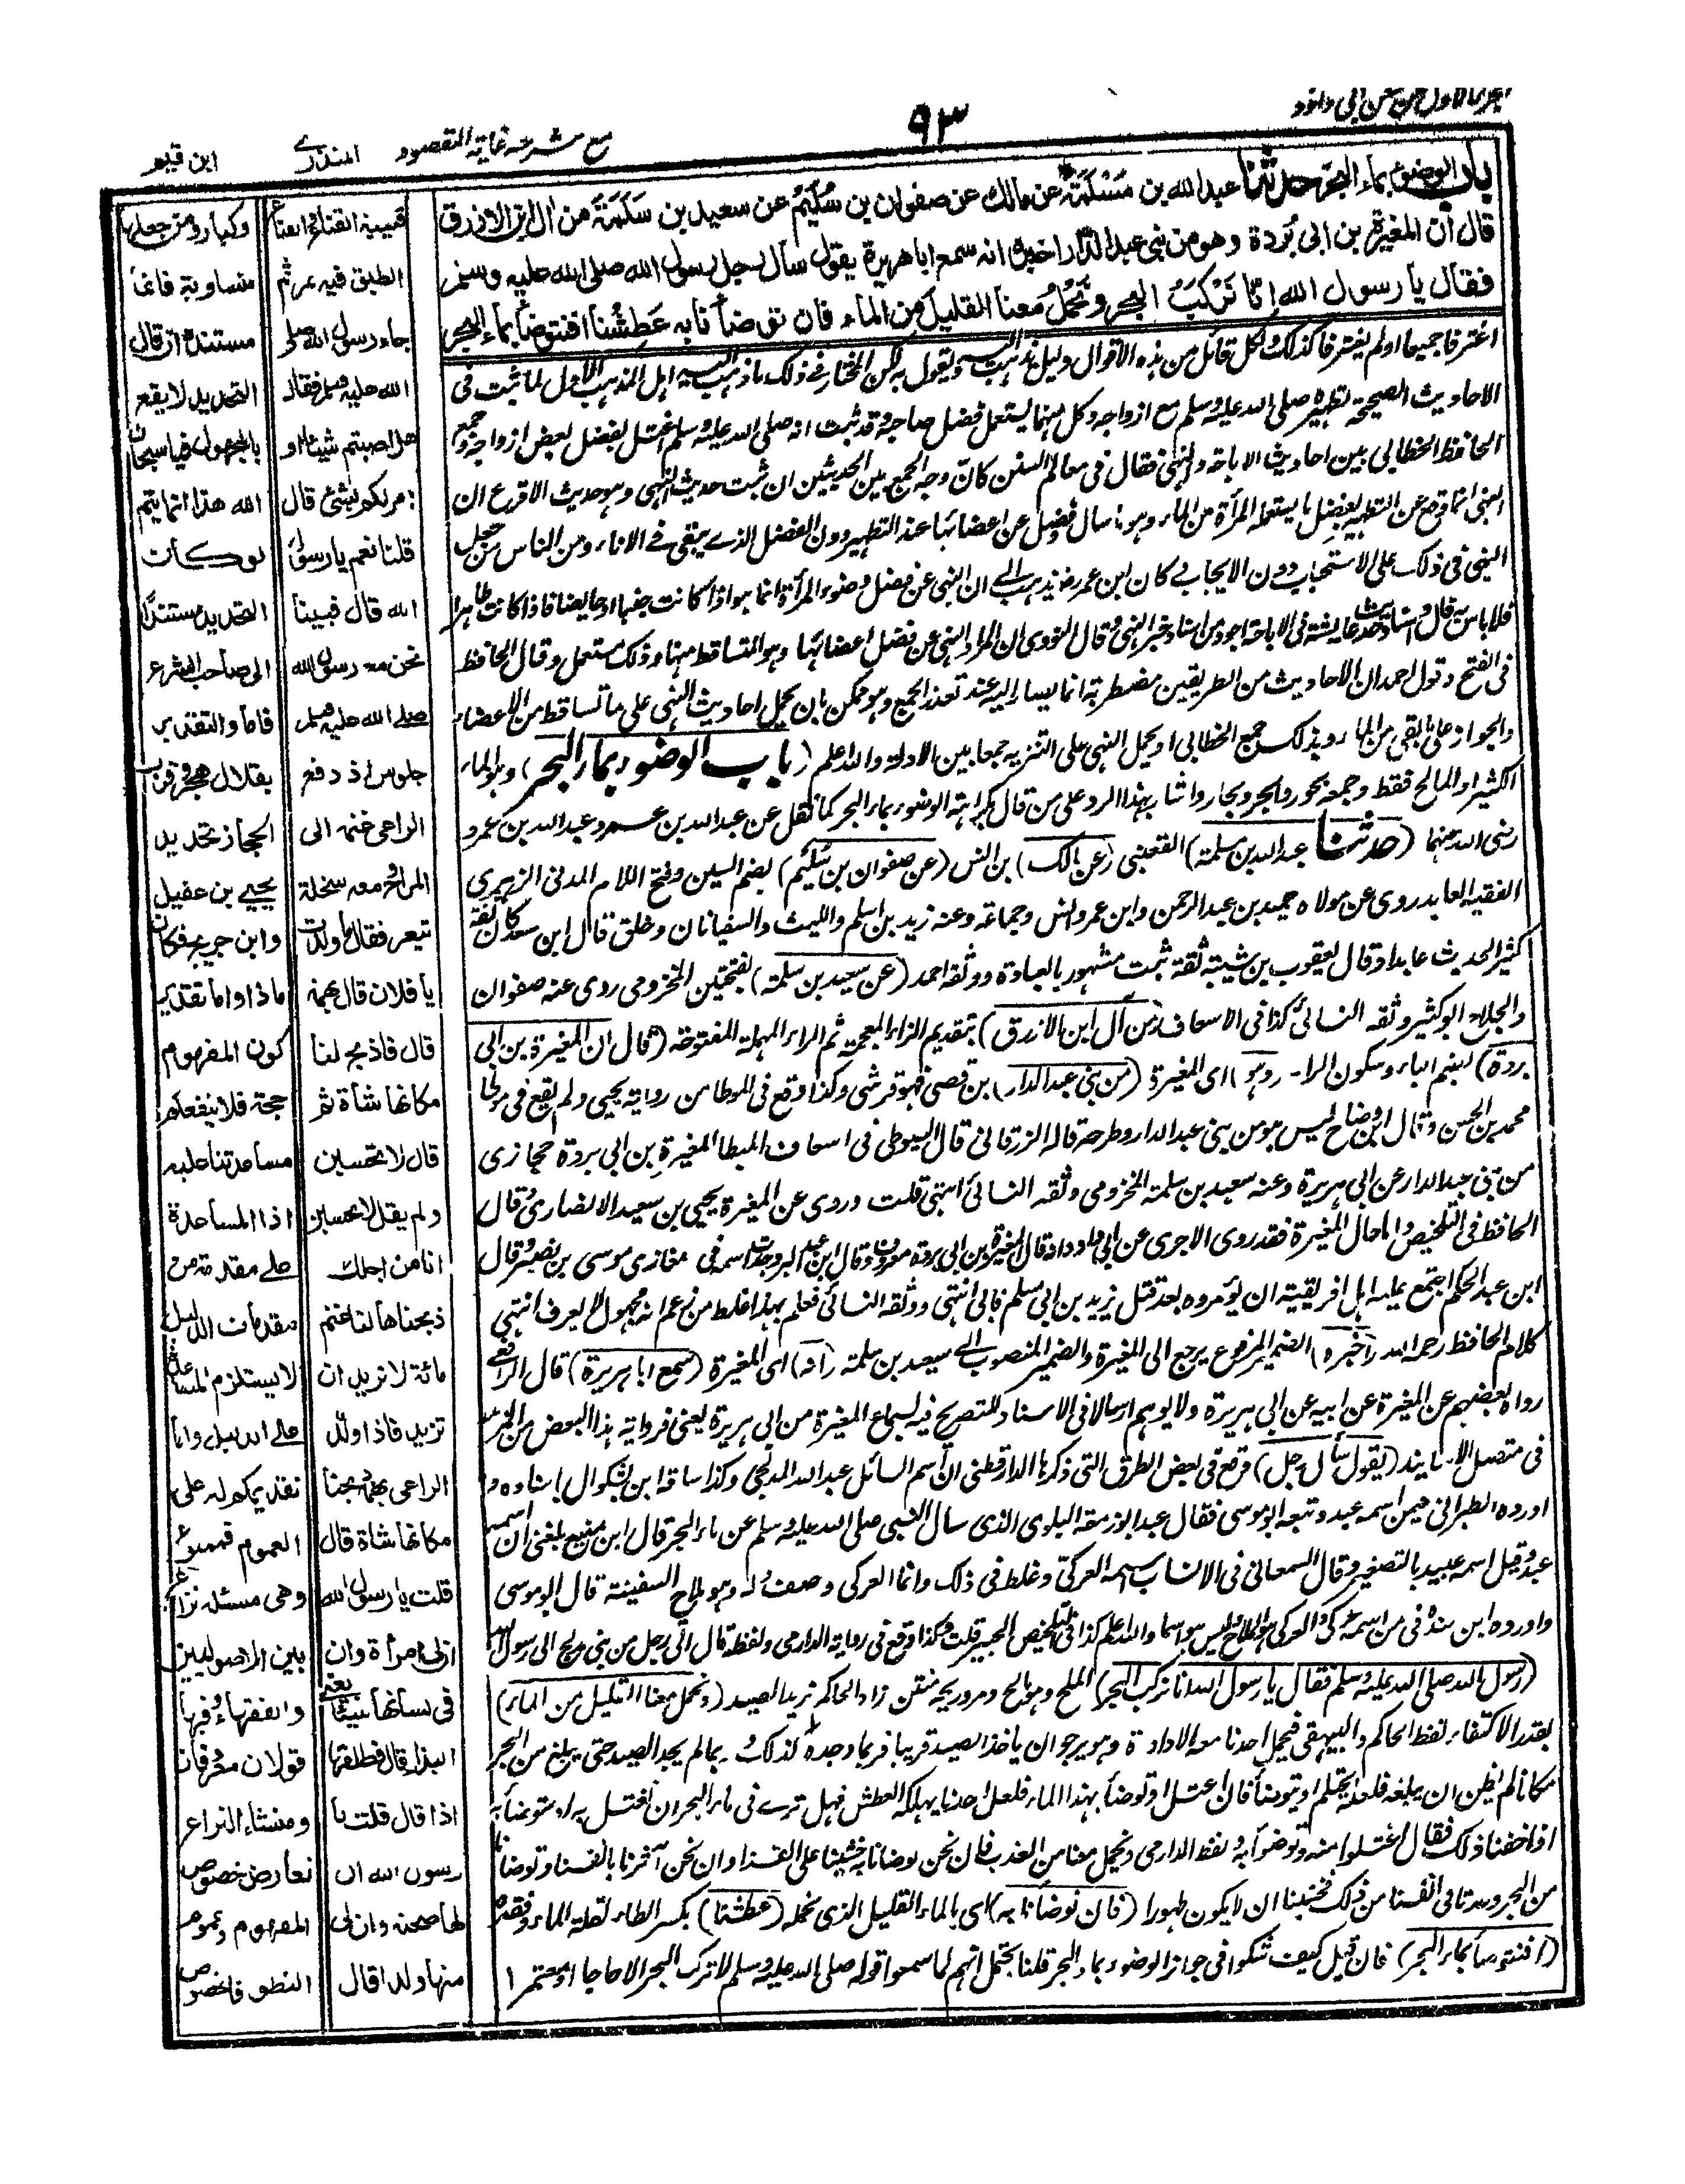 الجزء الاول من سنن ابي داؤد
٩٣
مع شرحه غاية المقصود
المنذري
ابن قيم
باب الوضوء بماء البحر حدثنا عبد الله بن مَسْلَمَة عن مالك عن صفوان بن سُلَيم عن سعيد بن سَلَمَة من ال ابن الازرق
قال ان المغيرة بن ابي بُردة وهو من بني عبد الدار اخبره انه سمع ابا هريرة يقول سأل رجل رسول الله صلى الله عليه وسلم
فقال يا رسول الله انّا نَركَبُ البحر ونَحمِلُ معنا القليل من الماء فان توضأنا به عَطِشْنا افنتوضأ بماء البحر
اغترفا جميعا او لم يغترفا كذلك ولكل قائل من هذه الاقوال دليل يذهب اليه ويقول به لكن المختار في ذلك ما ذهب اليه اهل المذهب الاول لما ثبت في
الاحاديث الصحيحة تطهيره صلى الله عليه وسلم مع ازواجه وكل منهما يستعمل فضل صاحبه وقد ثبت انه صلى الله عليه وسلم اغتسل بفضل بعض ازواجه وجمع
الحافظ الخطابي بين احاديث الاباحة والنهي فقال في معالم السنن كان وجه الجمع بين الحديثين ان ثبت حديث النهي وهو حديث الاقرع ان
النهي انما وقع عن التطهير بفضل ما يستعمله المرأة من الماء وهو ما سال وفضل عن اعضائها عند التطهير دون الفضل الذي يبقى في الاناء ومن الناس من جعل
النهي في ذلك على الاستحباب دون الايجاب وكان ابن عمر رض يذهب الى ان النهي عن فضل وضوء المرأة انما هو اذا كانت جنبا او حائضا فاذا كانت طاهرا
فلا باس به قال واسناد حديث عايشة في الاباحة اجود من اسناد خبر النهي وقال النووي ان المراد النهي عن فضل اعضائها وهو المتساقط منها وذلك مستعمل وقال الحافظ
في الفتح وقول احمد ان الاحاديث من الطريقين مضطربة انما يصار اليه عند تعذر الجمع وهو ممكن بان يحمل احاديث النهي على ما تساقط من الاعضاء
والجواز على ما بقي من الماء وبذلك جمع الخطابي او يحمل النهي على التنزيه جمعا بين الادلة والله اعلم (باب الوضوء بماء البحر) وهو الماء
الكثير او المالح فقط وجمعه بحور وابحر وبحار واشار بهذا الرد على من قال بكراهة الوضوء بماء البحر كما نقل عن عبد الله بن عمر وعبد الله بن عمرو
رضى الله عنهما (حدثنا عبد الله بن مسلمة) القعنبي (عن مالك) بن انس (عن صفوان بن سُليم) بضم السين وفتح اللام المدني الزهري
الفقيه العابد روى عن مولاه حميد بن عبد الرحمن وابن عمر وانس وجماعة وعنه زيد بن اسلم والليث والسفيانان وخلق قال ابن سعد كان ثقة
كثير الحديث عابدا وقال يعقوب بن شيبة ثقة ثبت مشهور بالعبادة ووثقه احمد (عن سعيد بن سلمة) بفتحتين المخزومي روى عنه صفوان
والجلاح ابو كثير وثقه النسائي كذا في الاسعاف (من آل ابن الازرق) بتقديم الزاء المعجمة ثم الراء المهملة المفتوحة (قال ان المغيرة بن ابي
بردة) بضم الباء وسكون الراء (وهو) اى المغيرة (من بني عبد الدار) بن قصي فهو قرشي وكذا وقع في الموطا من رواية يحيى ولم يقع في موطا
محمد بن الحسن وقال ابن وضاح ليس هو من بني عبد الدار وطرحه قاله الزرقاني قال السيوطي في اسعاف المبطا المغيرة بن ابي بردة حجازي
من بني عبد الدار عن ابي هريرة وعنه سعيد بن سلمة المخزومي وثقه النسائي انتهى قلت وروى عن المغيرة يحيى بن سعيد الانصاري وقال
الحافظ في التلخيص واما حال المغيرة فقد روى الآجري عن ابي داود انه قال المغيرة بن ابي بردة معروف وقال ابن عبد البر وجدت اسمه في مغازي موسى بن نصير وقال
ابن عبد الحكم اجتمع عليه اهل افريقية ان يؤمروه بعد قتل يزيد بن ابي مسلم فابى انتهى ووثقه النسائي فعلم بهذا غلط من زعم انه مجهول لا يعرف انتهى
كلام الحافظ رحمه الله (اخبره) الضمير المرفوع يرجع الى المغيرة والضمير المنصوب الى سعيد بن سلمة (انه) اى المغيرة (سمع ابا هريرة) قال الرافعي
رواه بعضهم عن المغيرة عن ابيه عن ابي هريرة ولا يوهم ارسالا في الاسناد للتصريح فيه بسماع المغيرة من ابي هريرة يعني فرواية هذا البعض من المزيد
في متصل الاسانيد (يقول سأل رجل) وقع في بعض الطرق التي ذكرها الدارقطني ان اسم السائل عبد الله المدلجي وكذا ساقه ابن بشكوال باسناده و
اورده الطبراني فيمن اسمه عبد وتبعه ابو موسى فقال عبد ابو زمعة البلوي الذي سال النبي صلى الله عليه وسلم عن ماء البحر قال ابن منيع بلغني ان اسمه
عبد وقيل اسمه عبيد بالتصغير وقال السمعاني في الانساب اسمه العركي وغلط في ذلك وانما العركي وصف له وهو ملاح السفينة قال ابو موسى
واورده ابن مندة في من اسمه عركي والعركي هو الملاح وليس هو اسما والله اعلم كذا في تلخيص الحبير قلت وكذا وقع في رواية الدارمي ولفظه قال اتى رجل من بني مدلج الى رسول الله
(رسول الله صلى الله عليه وسلم فقال يا رسول الله انا نركب البحر) الملح وهو مالح ومر وريحه منتن زاد الحاكم نريد الصيد (ونحمل معنا القليل من الماء)
بقدر الاكتفاء ولفظ الحاكم والبيهقي فيحمل احدنا معه الاداوة وهو يرجو ان ياخذ الصيد قريبا فربما وجده كذلك وربما لم يجد الصيد حتى يبلغ من البحر
مكانا لم يظن ان يبلغه فلعله يحتلم او يتوضأ فان اغتسل او توضأ بهذا الماء فلعل احدنا يهلكه العطش فهل ترى في ماء البحر ان نغتسل به او نتوضأ به
اذا خفنا ذلك فقال اغتسلوا منه وتوضؤا به ولفظ الدارمي ونحمل معنا من العذب فان نحن توضانا به خشينا على انفسنا وان نحن آثرنا بانفسنا وتوضانا
من البحر وجدنا في انفسنا من ذلك فخشينا ان لا يكون طهورا (فان توضانا به) اى بالماء القليل الذي نحمله (عطشنا) بكسر الطاء لقلة الماء وفقده
(افنتوضأ بماء البحر) فان قيل كيف شكوا في جواز الوضوء بماء البحر قلنا يحتمل انهم لما سمعوا قوله صلى الله عليه وسلم لا تركب البحر الا حاجا او معتمرا
الطبق فيه تمر ثم
جاء رسول الله صلى
الله عليه وسلم فقال
هل اصبتم شيئا او
امر لكم بشئ قال
قلنا نعم يا رسول
الله قال فبينا
نحن مع رسول الله
صلى الله عليه وسلم
جلوس اذ دفع
الراعى غنمه الى
المراح ومعه سخلة
تيعر فقال ما ولدت
يا فلان قال بهمة
قال فاذبح لنا
مكانها شاة ثم
قال لا تحسبن
ولم يقل لا تحسبن
انا من اجلك
ذبحناها لنا غنم
مائة لا نريد ان
تزيد فاذا ولد
الراعى بهمة ذبحنا
مكانها شاة قال
قلت يا رسول الله
ان لى امرأة وان
في لسانها شيئا يعني
البذاء قال فطلقها
اذا قال قلت يا
رسول الله ان
لها صحبة وان لى
منها ولدا قال
متساوية فانما
مستنده ان قال
التحديد لا يقع
بالمجهول فيا سبحان
الله هذا انما يتم
لو كان
التحديد مستندا
الى صاحب الشرع
فاما والتقدير
بقلال هجر وقرب
الحجاز تحديد
يحيى بن عقيل
وابن جريج فكان
ماذا واما تقدير
كون المفهوم
حجة فلا ينفعكم
مساعدتنا عليه
اذ المساعدة
على مقدمة من
مقدمات الدليل
لا يستلزم المساعدة
على الدليل واما
تقديمكم له على
العموم فممنوع
وهى مسئلة نزاع
بين الاصوليين
والفقهاء وفيها
قولان معروفان
ومنشاء النزاع
تعارض خصوص
المفهوم وعموم
النطق فالخصوص